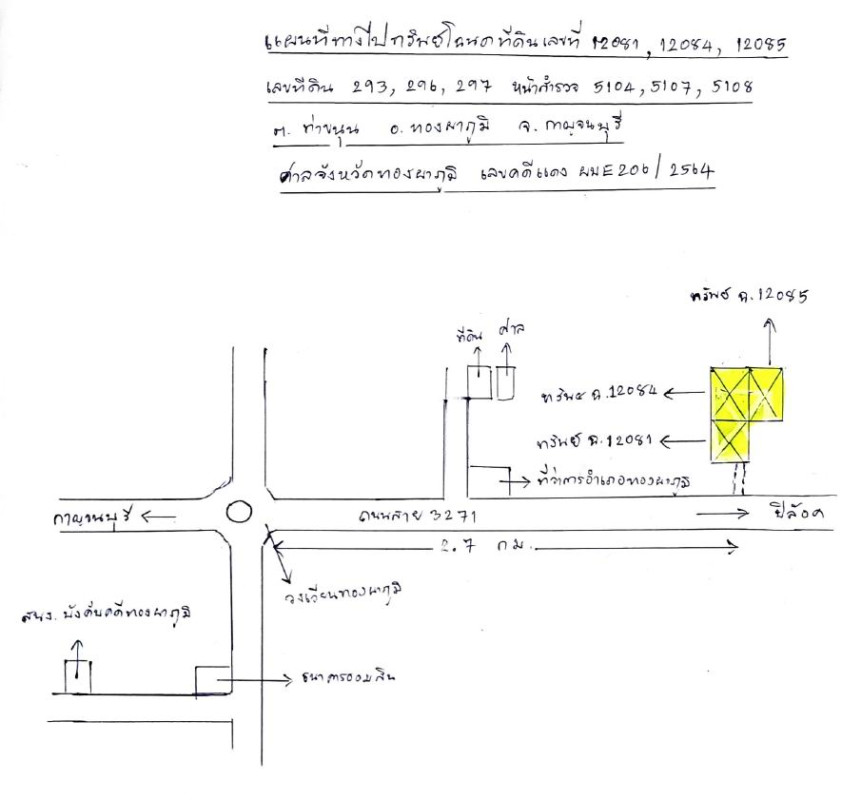 แผนที่ทางไปทรัพย์โฉนดที่ดินเลขที่ 12081, 12084, 12085
เลขที่ดิน 293, 296, 297 หน้าสำรวจ 5104, 5107, 5108
ต. ท่าขนุน อ. ทองผาภูมิ จ. กาญจนบุรี
ศาลจังหวัดทองผาภูมิ เลขคดีแดง ผบE206/2564
ทรัพย์ ฉ.12085
ที่ดิน
ศาล
ทรัพย์ ฉ.12084
ทรัพย์ ฉ.12081
ที่ว่าการอำเภอทองผาภูมิ
กาญจนบุรี
ถนนสาย 3271
ปิล๊อค
2.7 กม.
วงเวียนทองผาภูมิ
สนง. บังคับคดีทองผาภูมิ
ธนาคารออมสิน